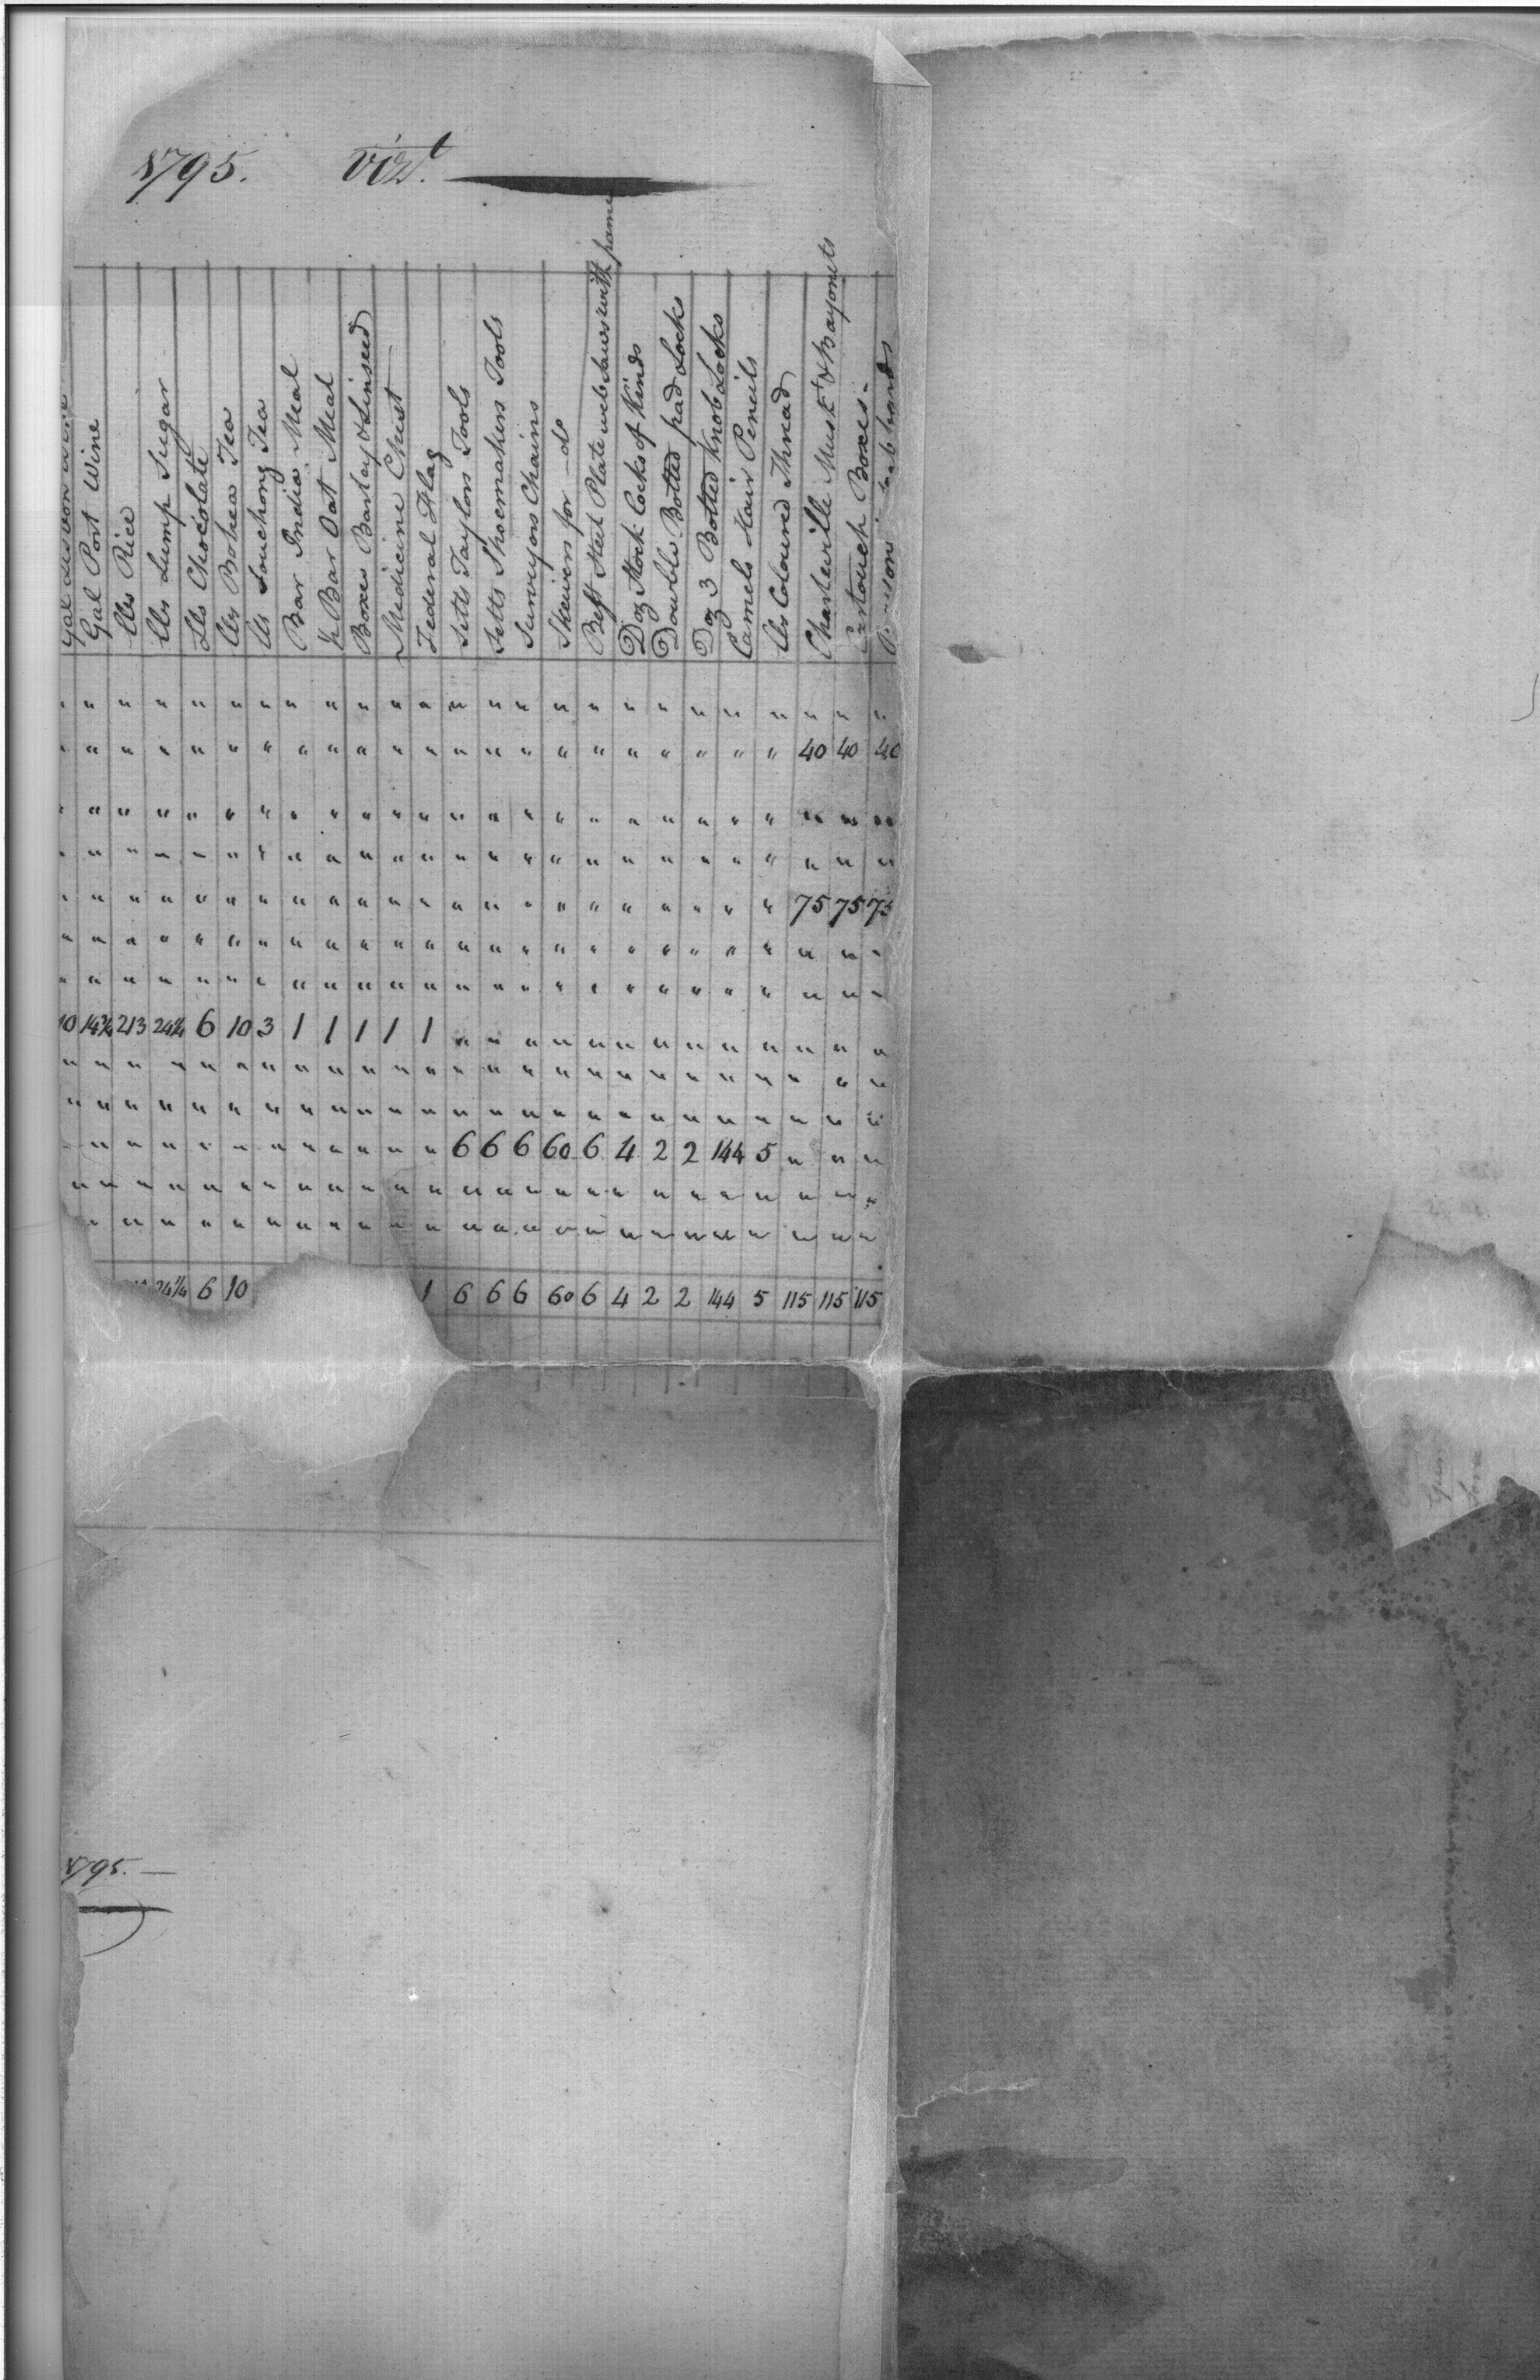 1795. Vizt.
Gal
Gal Port Wine
lbs Rice
lbs Lump Sugar
lbs Chocolate
lbs Bohea Tea
lbs Souchong Tea
Bar India Meal
Bar Oat Meal
Boxes Barley & Linseed
Medicine Chest
Federal Flag
Setts Taylors Tools
Setts Shoemakers Tools
Surveyors Chains
Skewers for do
Best Steel Plate web Saws with frame
Doz Stock Locks of Kinds
Double Bolted pad Locks
Doz 3 Bolted Knob Locks
Camels Hair Pencils
lbs Coloured Thread
Charleville Muskts & Bayonets
Cartouch Boxes
" " " " " " " " " " " " " " " " " " " " " " " " "
" " " " " " " " " " " " " " " " " " " " " " 40 40 40
" " " " " " " " " " " " " " " " " " " " " " " " "
" " " " " " " " " " " " " " " " " " " " " " " " "
" " " " " " " " " " " " " " " " " " " " " " 75 75 75
" " " " " " " " " " " " " " " " " " " " " " " " "
" " " " " " " " " " " " " " " " " " " " " " " " "
10 14¾ 213 24¼ 6 10 3 1 1 1 1 1 " " " " " " " " " " " " "
" " " " " " " " " " " " " " " " " " " " " " " " "
" " " " " " " " " " " " " " " " " " " " " " " " "
" " " " " " " " " " " " 6 6 6 60 6 4 2 2 144 5 " " "
" " " " " " " " " " " " " " " " " " " " " " " " "
" " " " " " " " " " " " " " " " " " " " " " " "
24¼ 6 10 1 6 6 6 60 6 4 2 2 144 5 115 115 115
1795.